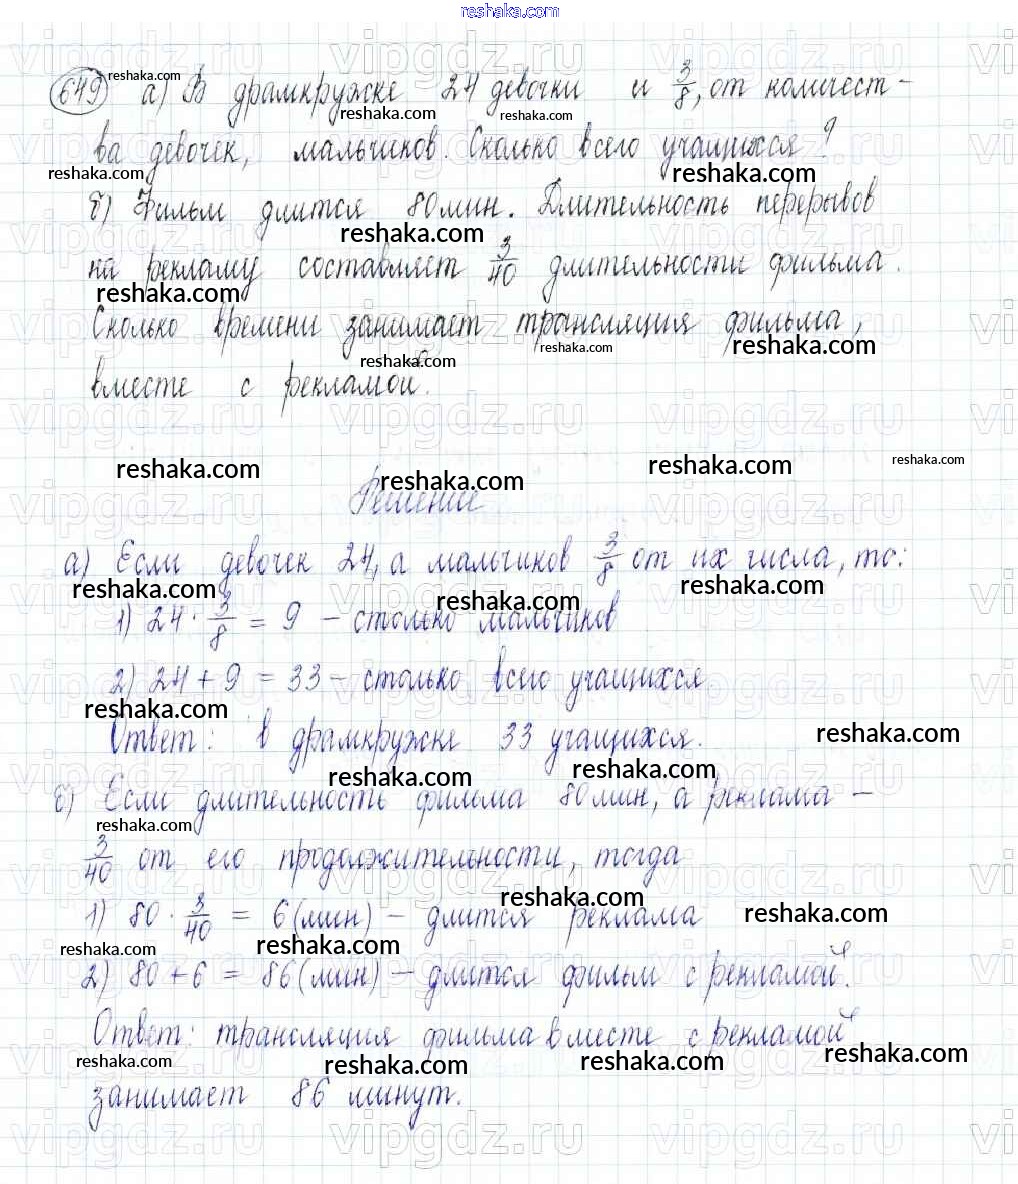 reshaka.com
649 а) В драмкружке 24 девочки и 3/8, от количест-
ва девочек, мальчиков. Сколько всего учащихся?
б) Фильм длится 80 мин. Длительность перерывов
на рекламу составляет 3/40 длительности фильма.
Сколько времени занимает трансляция фильма,
вместе с рекламой.
Решение
а) Если девочек 24, а мальчиков 3/8 от их числа, то:
1) 24 · 3/8 = 9 – столько мальчиков
2) 24 + 9 = 33 – столько всего учащихся.
Ответ: в драмкружке 33 учащихся.
б) Если длительность фильма 80 мин, а реклама –
3/40 от его продолжительности, тогда
1) 80 · 3/40 = 6 (мин) – длится реклама
2) 80 + 6 = 86 (мин) – длится фильм с рекламой.
Ответ: трансляция фильма вместе с рекламой
занимает 86 минут.